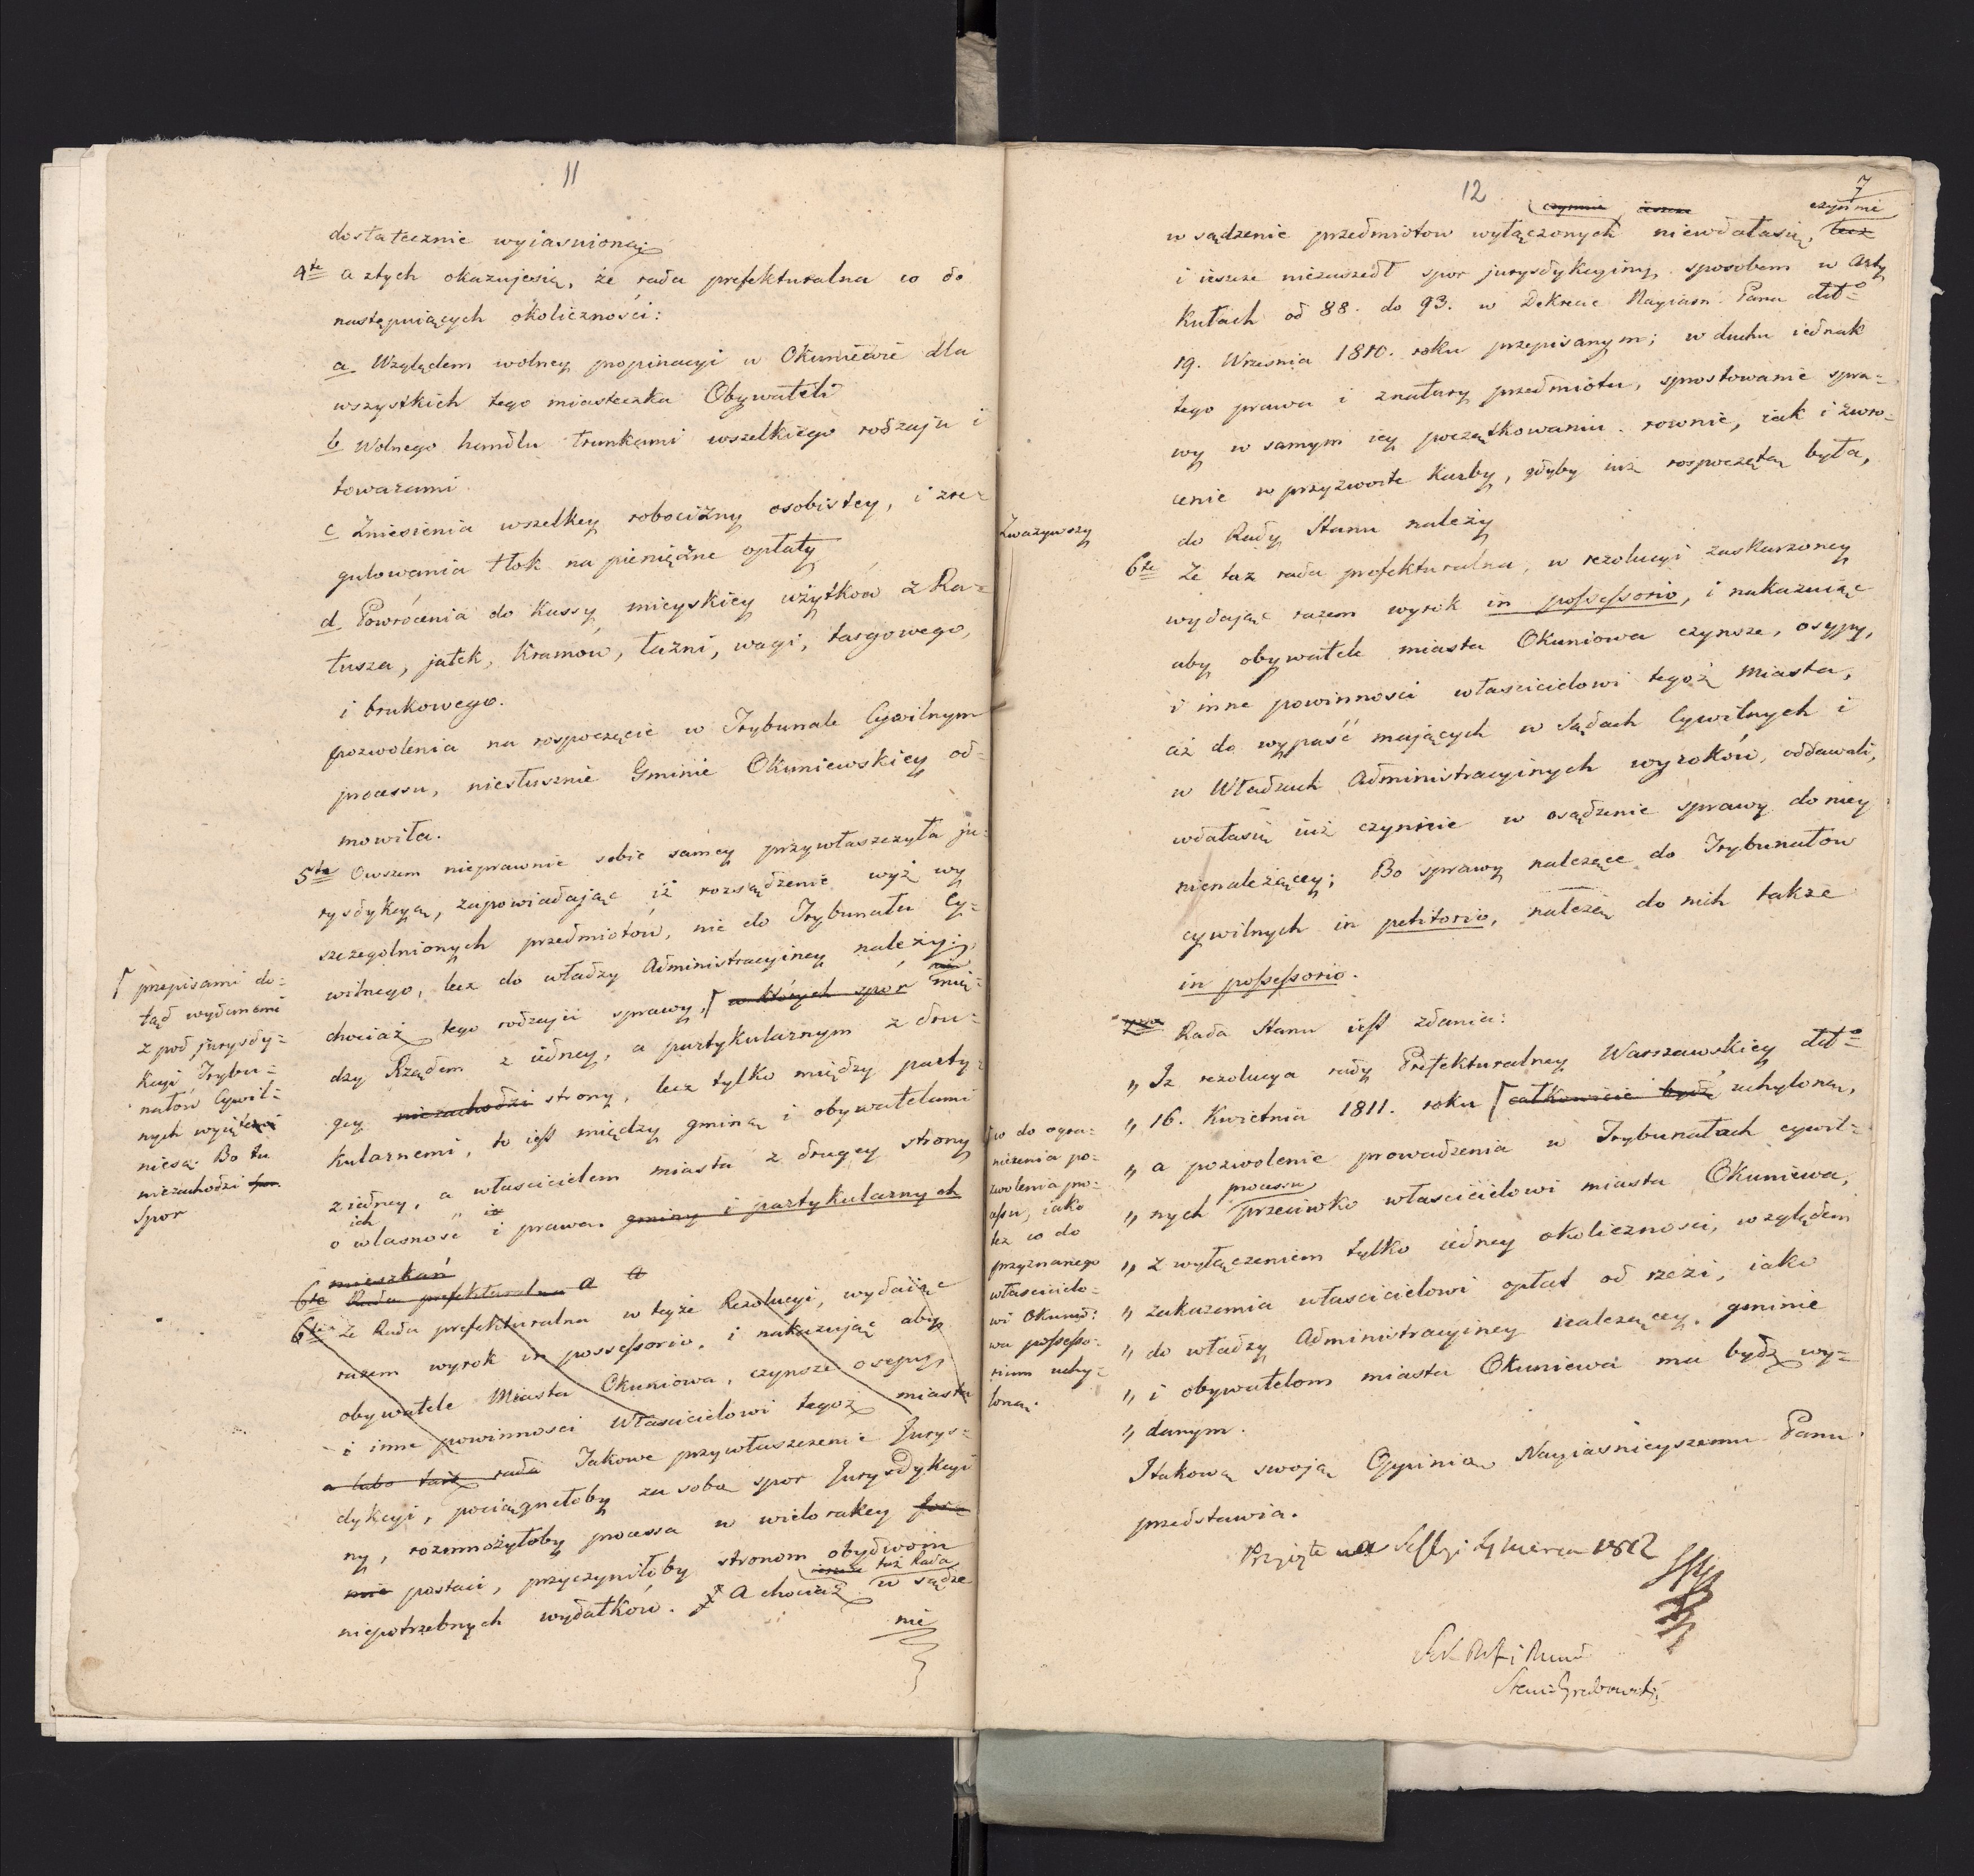 11
dostatecznie wyiasnioną;
4te a ztych okazujesię, że rada prefekturalna co do
następuiących okoliczności:
a Względem wolney propinacyi w Okuniewie dla
wszystkich tego miasteczka Obywateli
b Wolnego handlu trunkami wszelkiego rodzaju i
towarami.
c Zniesienia wszelkiey robocizny osobistey, i zre=
gulowania tłok na pieniężne opłaty
d Powrócenia do Kassy mieyskiey użytków z Ra=
tusza, jatek, Kramów, łazni, wagi, targowego,
i brukowego.
pozwolenia na rospoczęcie w Trybunale Cywilnym
processu, niesłusznie Gminie Okuniewskiey od=
mowiła.
5te Owszem nieprawnie sobie samey przywłaszczyła ju=
rysdykcyą, zapowiadając iż rozsądzenie wyż wy
szczegolnionych przedmiotów, nie do Trybunału Cy=
wilnego, lecz do władzy Administracyiney należy:
chociaż tego rodzaju sprawy, w których spór nie mię=
dzy Rządem z iedney, a partykularnym z dru=
giey niezachodzi strony, lecz tylko między party=
kularnemi, to iest między gminą i obywatelami
z iedney, a właścicielem miasta z drugiey strony
o ich własność i prawa. gminy i partykularnych
mieszkań
przepisami do=
tąd wydanemi
z pod jurysdy=
kcyi Trybu=
nałów Cywil=
nych wyięte
niesą. Bo tu
niezachodzi
Spor
6te Rada prefekturalna a a
6te Że Rada prefekturalna w teyże Rezolucyi, wydaiąc
razem wyrok in possessorio, i nakazując aby
obywatele Miasta Okuniowa, czynsze osepy,
i inne powinnosci Właścicielowi tegoż miasta
a lubo taż rada Takowe przywłaszczenie Jurys=
dykcyi, pociągnęłoby za sobą spor Jurysdykcyi
ny, rozmnożyłoby processa w wielorakiey
postaci, przyczyniłoby stronom obydwom
niepotrzebnych wydatków. A chociaż ieszcze taż Rada w sądze
nie
12
7
czynnie ieszcze czynnie
w sądzenie przedmiotow wyłączonych niewdałasię, lecz
i ieszcze niezaszedł spor jurysdykcyiny sposobem w Arty
kułach od 88. do 93. w Dekrecie Nayiasn: Pana dtto
19. Wrzesnia 1810. roku przepisanym; w duchu iednak
tego prawa i znatury przedmiotu, sprostowanie spra=
wy w samym iey początkowaniu rownie, iak i zwro=
cenie w przyzwoite karby, gdyby iuż rospoczętą była,
do Rady Stanu należy
Zważywszy
6te Że taż rada prefekturalna, w rezolucyi zaskarżoney
wydając razem wyrok in possessorio, i nakazuiąc
aby obywatele miasta Okuniowa czynsze, osypy,
i inne powinnosci właścicielowi tegoż Miasta,
aż do wypaść mających w Sądach Cywilnych i
w Władzach Administracyinych wyroków, oddawali,
wdałasię iuż czynnie w osądzenie sprawy do niey
nienależącey; Bo sprawy należące do Trybunałow
cywilnych in petitorio, należą do nich także
in possessorio.
Rada Stanu iest zdania:
„ Iż rezolucya rady Prefekturalney Warszawskiey dtto
„ 16. Kwietnia 1811. roku całkowicie bydź uchyloną,
„ a pozwolenie prowadzenia w Trybunałach cywil=
„ nych processu przeciwko właścicielowi miasta Okuniewa,
„ z wyłączeniem tylko iedney okoliczności, względem
„ zakazania właścicielowi opłat od rzezi, iako
„ do władzy Administracyiney należącey, gminie
„ i obywatelom miasta Okuniewa ma bydź wy=
„ danym.
co do ogra=
niczenia po=
zwolenia pro=
cessu, iako
też co do
przyznanego
właścicielo=
wi Okunie=
wa possesso=
rium uchy=
loną.
Itakową swoią Oppinią Nayiasnieyszemu Panu
przedstawia.
Przyięte na Sessyi 4 Marca 1812
Stanis Grabowski